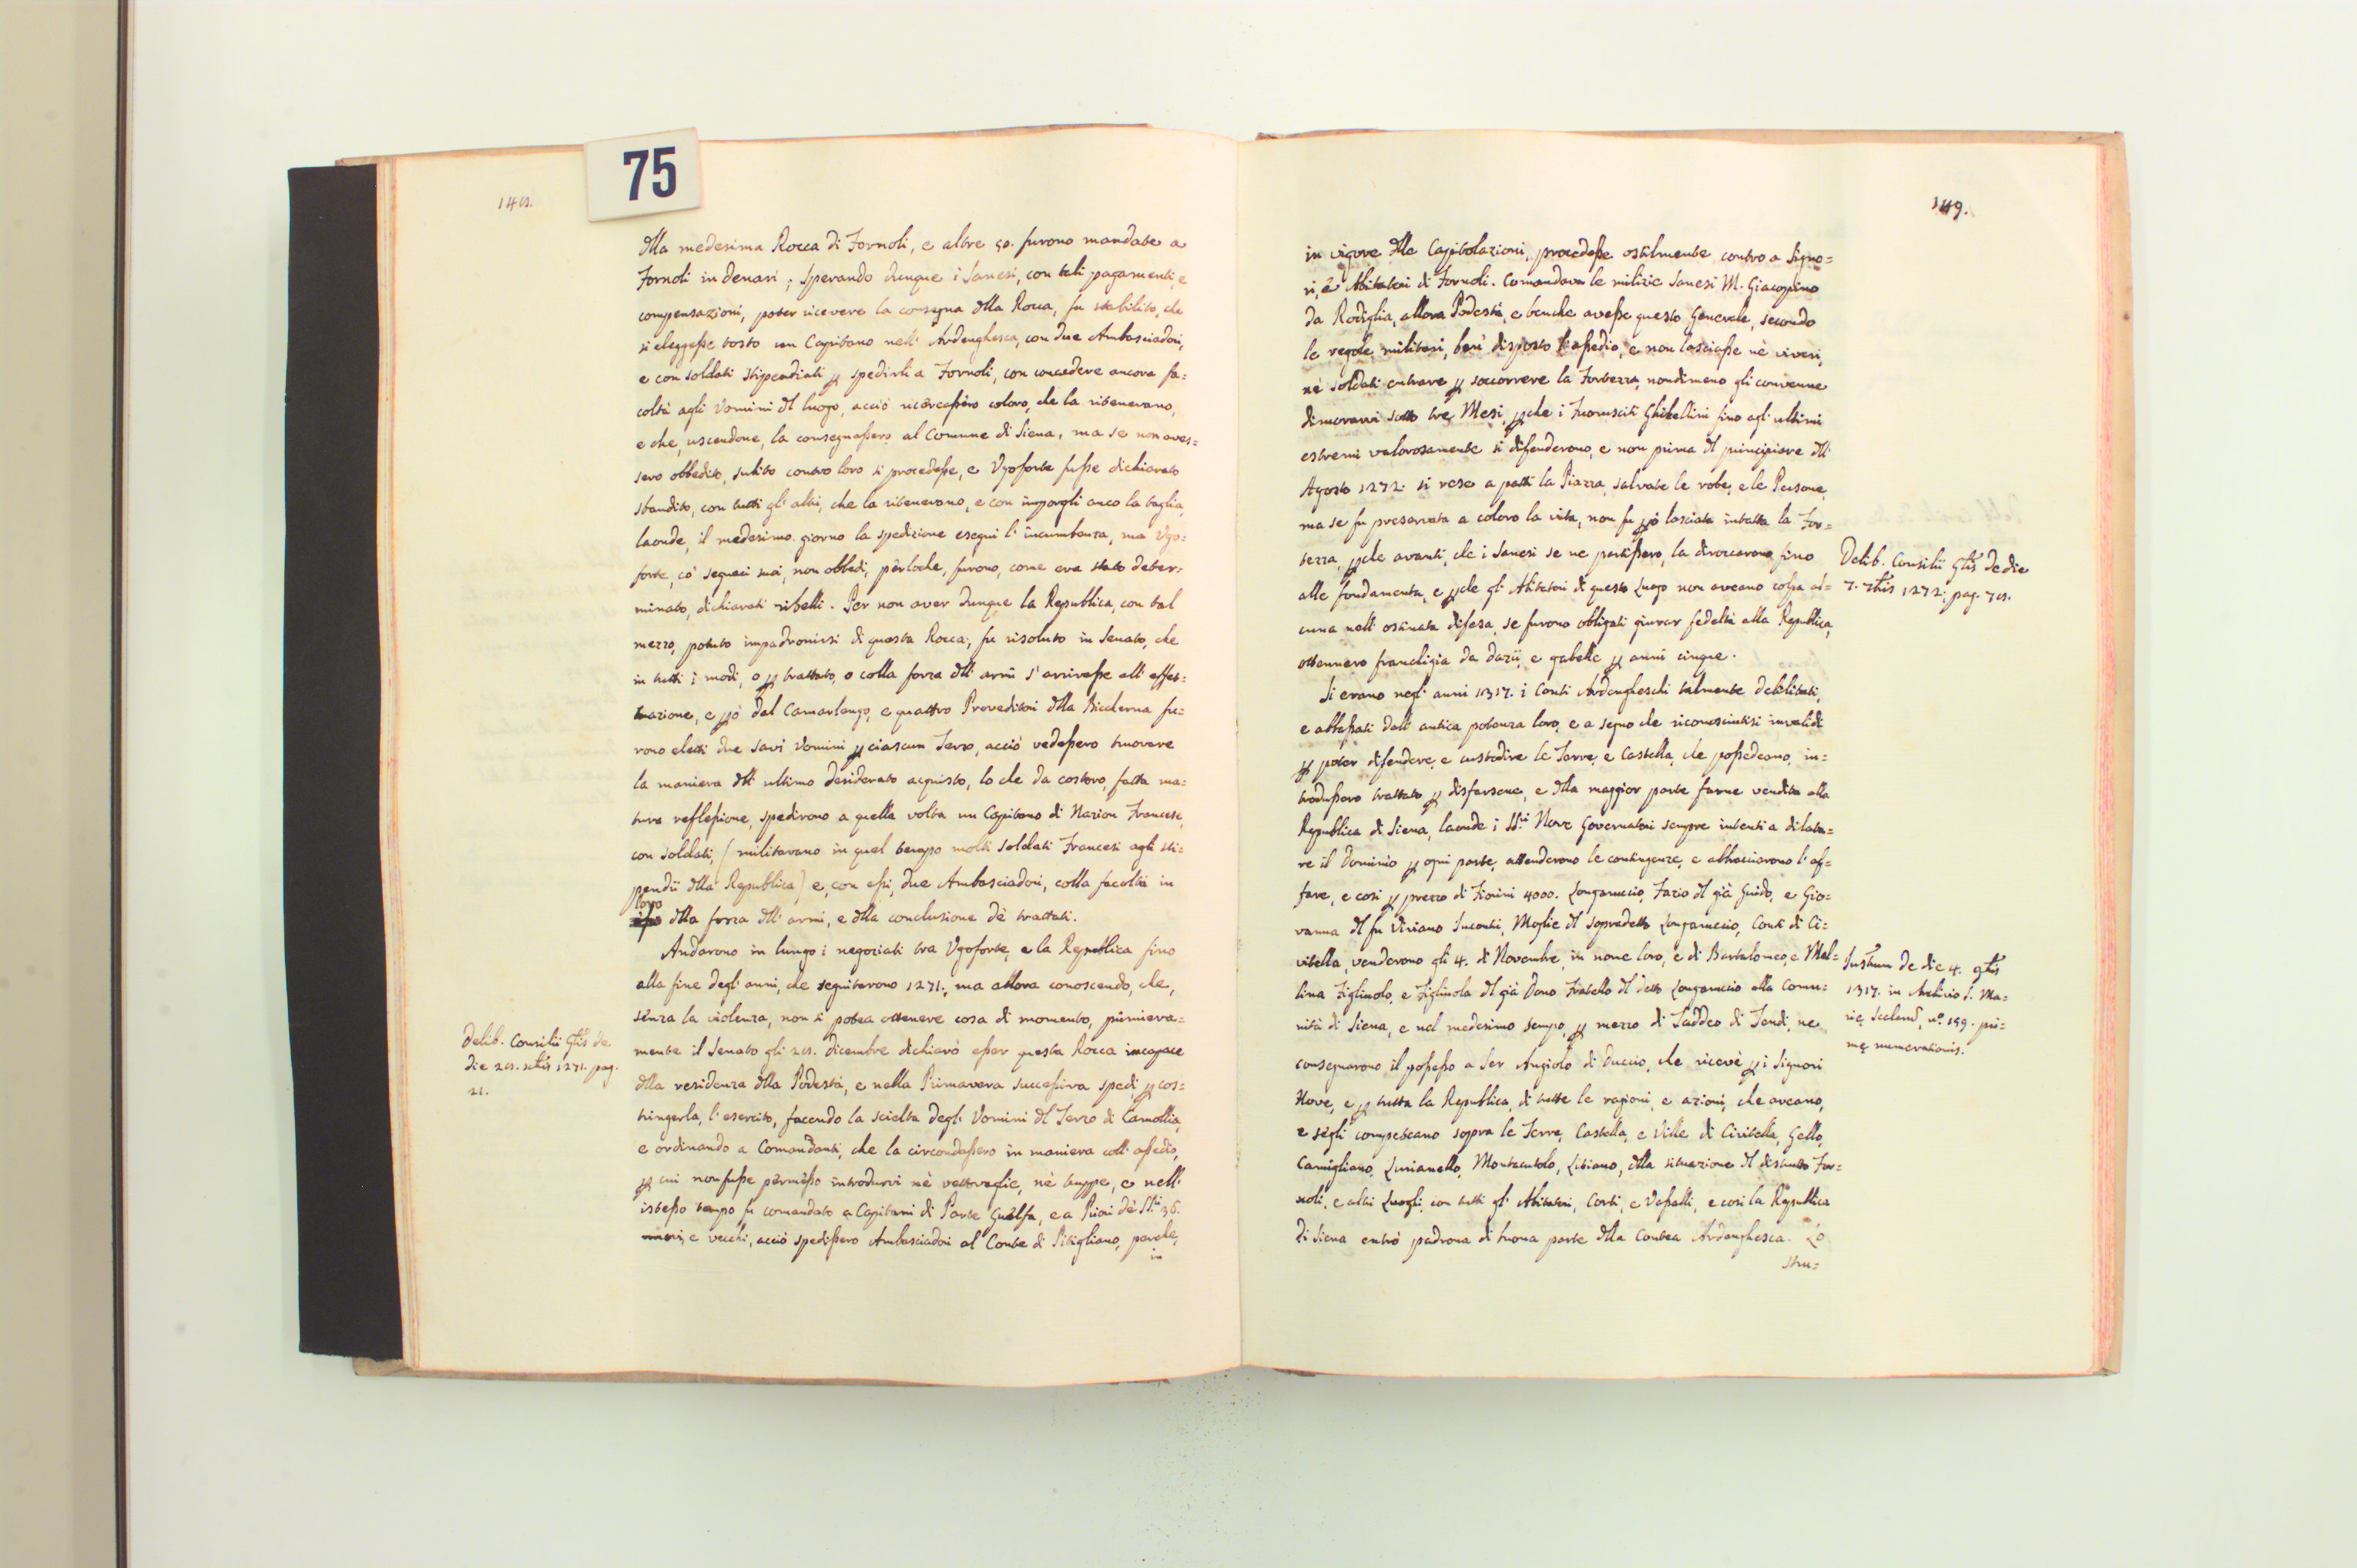 75
148.
dlla medesima Rocca di Fornoli, e altre 50. furono mandate a
Fornoli in denari; Sperando dunque i Sanesi, con tali pagamenti, e
compensazioni, poter ricevere la consegna dlla Rocca, fu stabilito, che
si eleggesse tosto un Capitano nell' Ardenghesca, con due Ambasciadori,
e con soldati stipendiati p spedirli a Fornoli, con concedere ancora fa=
coltà agli Vomini dl luogo, acciò ricercassero coloro, che la ritenevano,
e che, uscendone, la consegnassero al Comune di Siena, ma se non aves=
sero obbedito, subito contro loro si procedesse, e Vgoforte fusse dichiarato
sbandito, con tutti gl' altri, che la ritenevano, e con imporgli anco la taglia,
laonde, il medesimo giorno la spedizione eseguì l' incumbenza, ma Vgo=
forte, co' seguaci suoi, non obbedì, perloche, furono, come era stato deter=
minato, dichiarati ribelli. Per non aver dunque la Republica, con tal
mezzo, potuto impadronirsi di questa Rocca, fu risoluto in Senato, che
in tutti i modi, o p trattato, o colla forza dll' armi s' arrivasse all' effet=
tuazione, e pò dal Camarlengo, e quattro Proveditori dlla Biccherna fu=
rono eletti due savi Vomini p ciascun Terzo, acciò vedessero truovare
la maniera dll' ultimo desiderato acquisto, lo che da costoro, fatta ma=
tura reflessione, spedirono a quella volta un Capitano di Nazion Francese,
con soldati, (militavano in quel tempo molti soldati Francesi agli sti=
pendii dlla Republica) e, con essi, due Ambasciadori, colla facoltà in
loro
dlla forza dll' armi, e dlla conclusione dè trattati.
Andarono in lungo i negoziati tra Vgoforte, e la Republica fino
alla fine degl' anni, che seguitarono 1271., ma allora conoscendo, che,
senza la violenza, non si potea ottenere cosa di momento, primiera=
mente il Senato gli 28. dicembre dichiarò esser questa Rocca incapace
dlla residenza dlla Podestà, e nella Primavera successiva spedì, p cos=
tringerla, l' esercito, facendo la scielta degl' Vomini dl Terzo di Camollia,
e ordinando a Comandanti, che la circondassero in maniera coll' assedio,
p cui non fusse permesso introdurvi nè vettovaglie, nè truppe, e nell'
istesso tempo fu comandato a Capitani di Parte Guelfa, e a Priori dè SS.ri 36.
nuovi, e vecchi, acciò spedissero Ambasciadori al Conte di Pitigliano, perche,
in
Delib. Consilii Glis de
die 28. xbris 1271. pag.
21.
149.
in vigore dlle Capitolazioni, procedesse ostilmente contro a Signo=
ri, e Abitatori di Fornoli. Comandava le milizie Sanesi M. Giacopino
da Rodiglia, allora Podestà, e benche avesse questo Generale, secondo
le regole militari, ben' disposto l'assedio, e non lasciasse nè viveri,
nè soldati entrare p soccorrere la Fortezza, nondimeno gli convenne
dimorarvi sotto tre Mesi, pche i Fuorusciti Ghibellini fino agl' ultimi
estremi valorosamente si difenderono, e non prima dl principiare dll'
Agosto 1272. si rese a patti la Piazza, salvate le robe, e le Persone,
ma se fu preservata a coloro la vita, non fu pò lasciata intatta la For=
tezza, pche avanti, che i Sanesi se ne partissero, la diroccarono fino
alle fondamenta, e pche gl' Abitatori di questo Luogo non aveano colpa al=
cuna nell' ostinata difesa, se furono obligati giurar fedeltà alla Republica,
ottennero franchigia da dazii, e gabelle p anni cinque.
Si erano negl' anni 1317. i Conti Ardengheschi talmente debilitati,
e abbassati dall' antica potenza loro, e a segno che riconosciutisi invalidi
p poter difendere, e custodire le Terre, e Castella, che possedeano, in=
trodussero trattato p disfarsene, e dlla maggior parte farne vendita alla
Republica di Siena, laonde i SS.ri Nove Governatori sempre intenti a dilata=
re il Dominio p ogni parte, attenderono le contingenze, e abbracciarono l' af=
fare, e così p prezzo di Fiorini 4000. Longaruccio, Fazio dl già Guido, e Gio=
vanna dl fu Viviano Inconti, Moglie dl sopradetto Longaruccio, Conti di Ci=
vitella, venderono gli 4. di Novembre, in nome loro, e di Bartalomeo, e Mel=
lina Figliuolo, e Figliuola dl già Dono Fratello dl detto Longaruccio alla Comu=
nità di Siena, e nel medesimo tempo, p mezzo di Taddeo di Tendi, ne
consegnarono il possesso a Ser Angiolo di Duccio, che ricevè p i Signori
Nove, e p tutta la Republica, di tutte le ragioni, e azioni, che aveano,
e segli competeano sopra le Terre, Castella, e Ville di Civitella, Gello,
Camigliano, Lurianello, Montacutolo, Litiano, dlla situazione dl distrutto For=
noli, e altri Luogli, con tutti gl' Abitatori, Corti, e Vassalli, e così la Republica
di Siena entrò padrona di buona parte dlla Contea Ardenghesca. Lo
stru=
Delib. Consilii Glis de die
7. xbris 1272. pag. 78.
Instrum de die 4. 9bris
1317. in Archivio S. Ma=
rię Scalarum, nº. 199. pri=
mę numerationis.